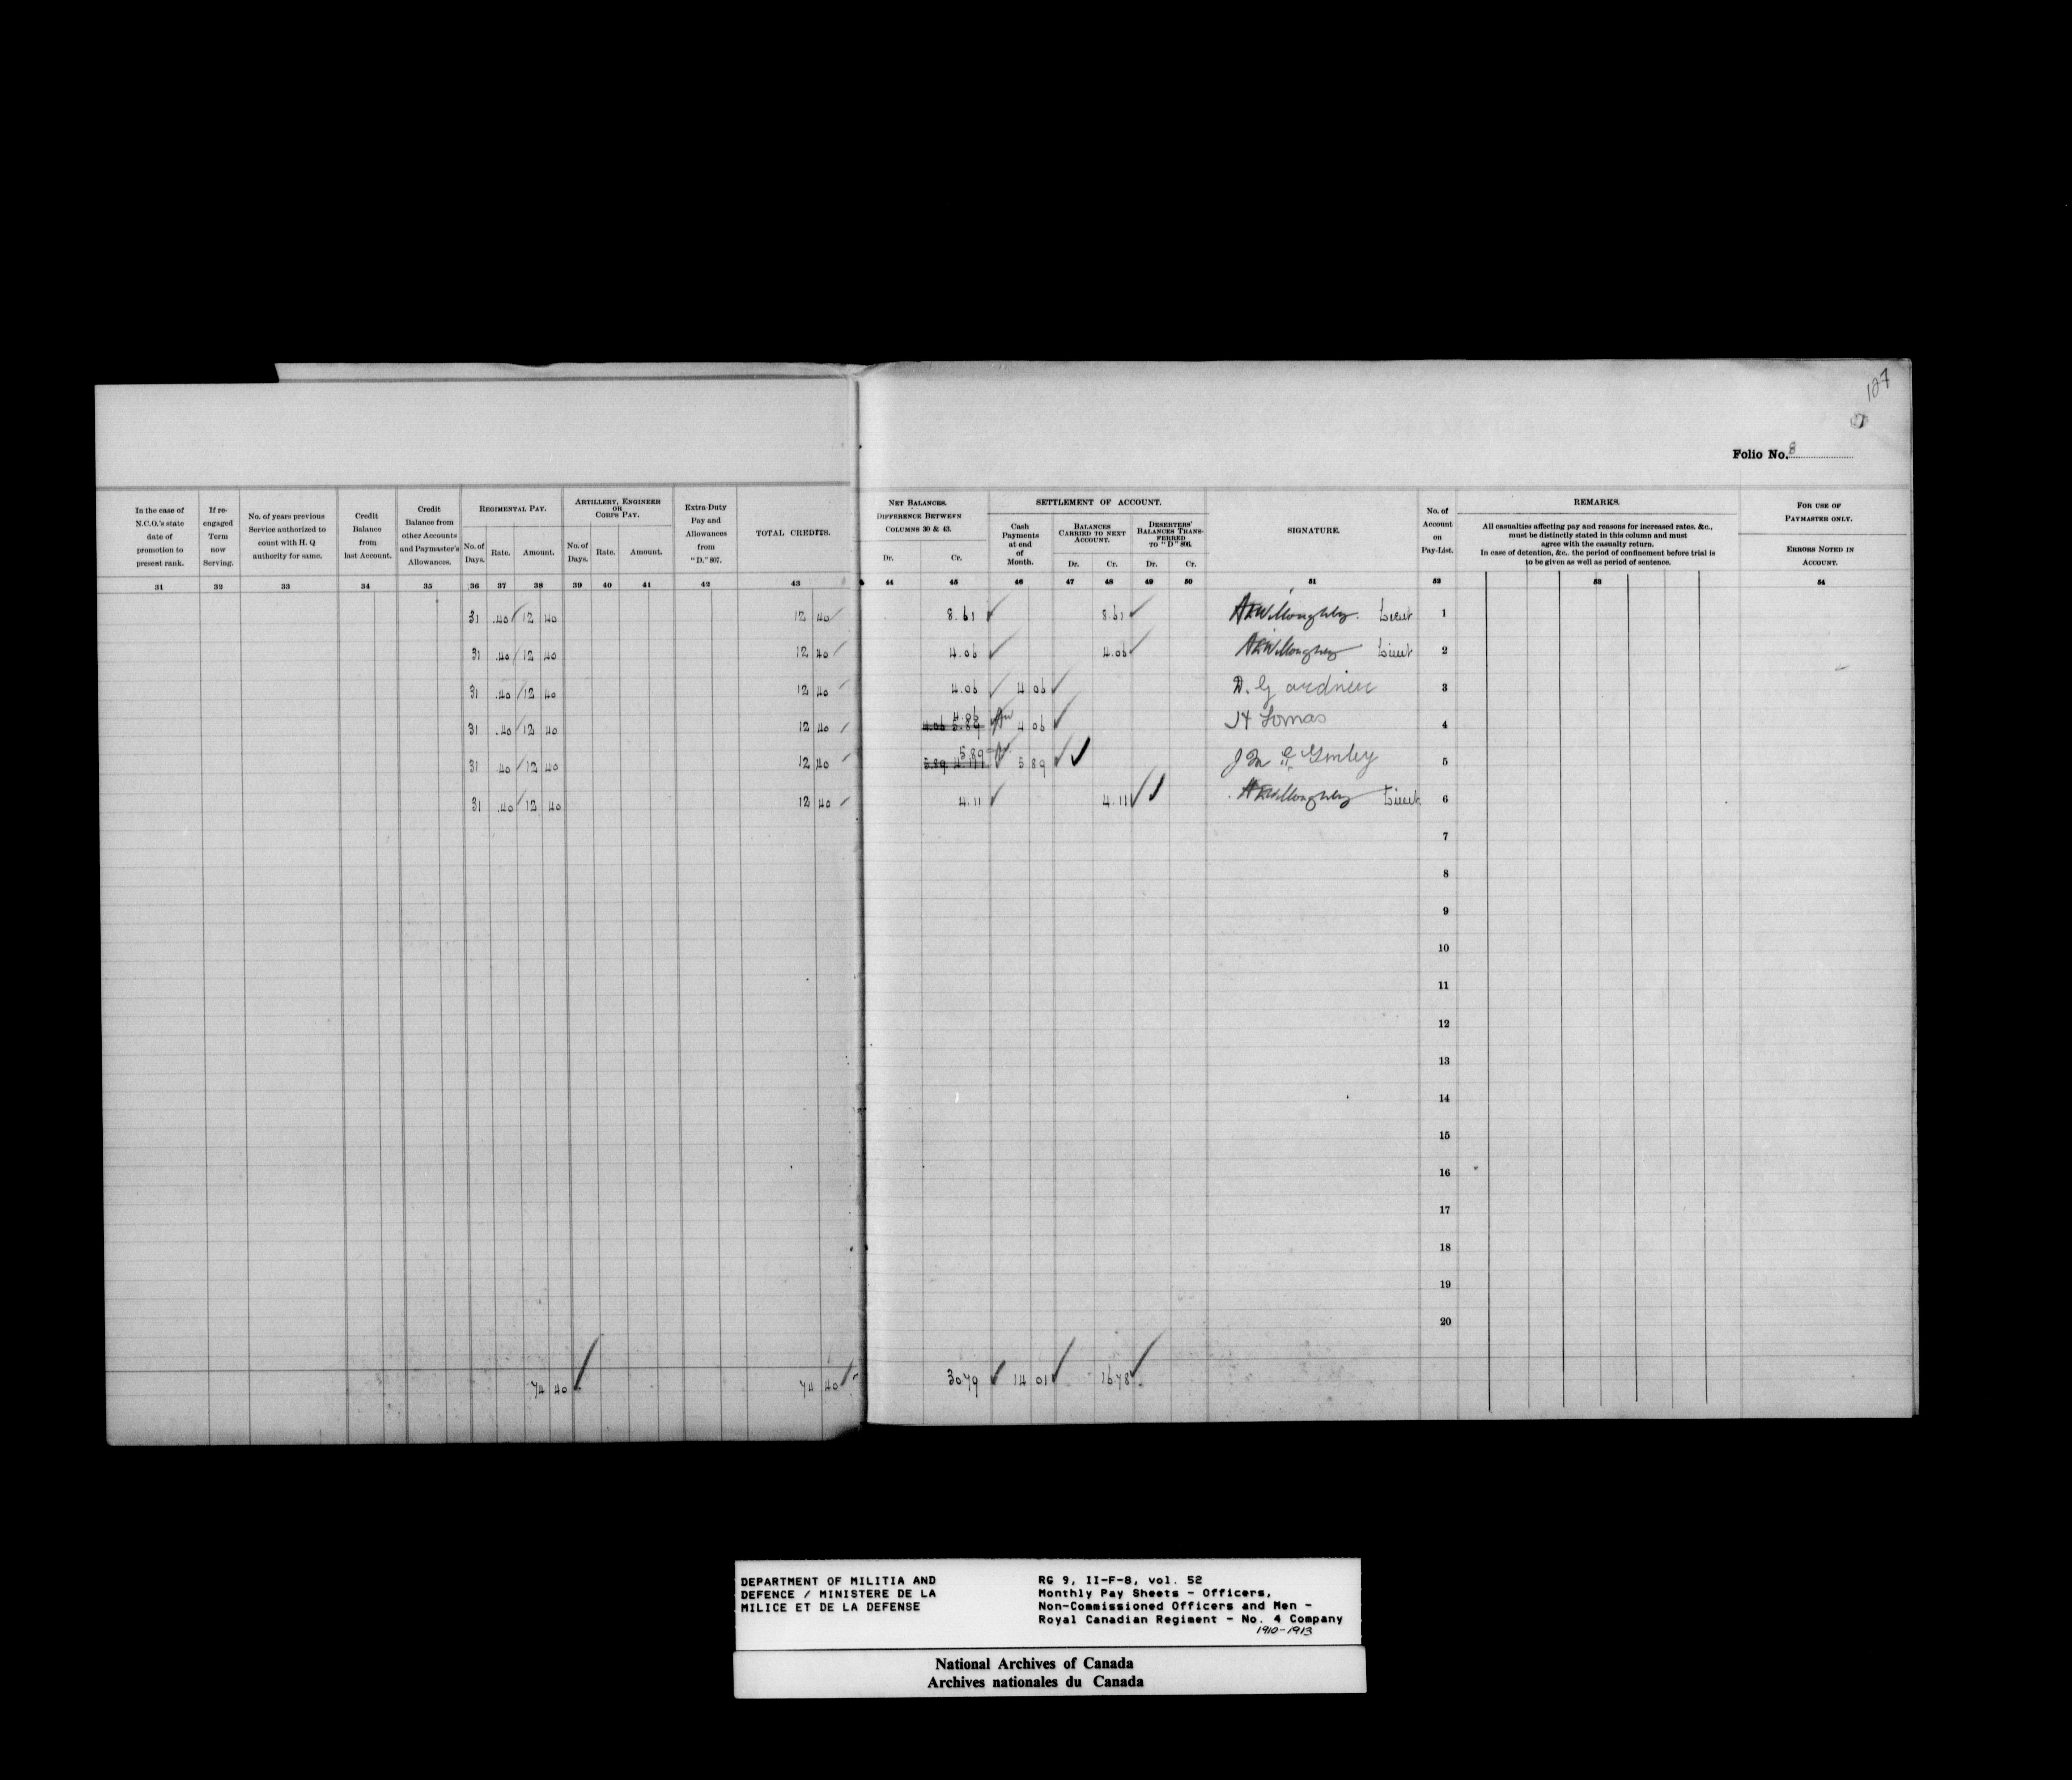 187
Folio No. 8
In the case of N.C.O.'s state date of promotion to present rank.
If re-engaged Term now Serving.
No. of years previous Service authorized to count with H. Q authority for same.
Credit Balance from last Account.
Credit Balance from other Accounts and Paymaster's Allowances.
REGIMENTAL PAY.
No. of Days.
Rate.
Amount.
ARTILLERY, ENGINEER OR CORPS PAY.
No. of Days.
Rate.
Amount.
Extra-Duty Pay and Allowances from "D." 807.
TOTAL CREDITS.
NET BALANCES.
DIFFERENCE BETWEEN COLUMNS 30 & 43.
Dr.
Cr.
SETTLEMENT OF ACCOUNT.
Cash Payments at end of Month.
BALANCES CARRIED TO NEXT ACCOUNT.
Dr.
Cr.
DESERTERS' BALANCES TRANSFERRED TO "D" 806.
Dr.
Cr.
SIGNATURE.
No. of Account on Pay-List.
REMARKS.
All casualties affecting pay and reasons for increased rates, &c., must be distinctly stated in this column and must agree with the casualty return.
In case of detention, &c., the period of confinement before trial is to be given as well as period of sentence.
FOR USE OF PAYMASTER ONLY.
ERRORS NOTED IN ACCOUNT.
31 32 33 34 35 36 37 38 39 40 41 42 43 44 45 46 47 48 49 50 51 52 53 54
31 .40 12 40 12 40 8.61 8.61 Willoughby. Lieut 1
31 .40 12 40 12 40 4.06 4.06 Willoughby Lieut 2
31 .40 12 40 12 40 4.06 4 06 D. Gardner 3
31 .40 12 40 12 40 4.06 5.89 4.06 4 06 Lomas 4
31 .40 12 40 12 40 5.89 4.11 5.89 5 89 J Mc Ginley 5
31 .40 12 40 12 40 4.11 4.11 Willoughby Lieut 6
7
8
9
10
11
12
13
14
15
16
17
18
19
20
74 40 74 40 3079 14 01 1678
DEPARTMENT OF MILITIA AND
DEFENCE / MINISTERE DE LA
MILICE ET DE LA DEFENSE
RG 9, II-F-8, vol. 52
Monthly Pay Sheets - Officers,
Non-Commissioned Officers and Men -
Royal Canadian Regiment - No. 4 Company
1910-1913
National Archives of Canada
Archives nationales du Canada